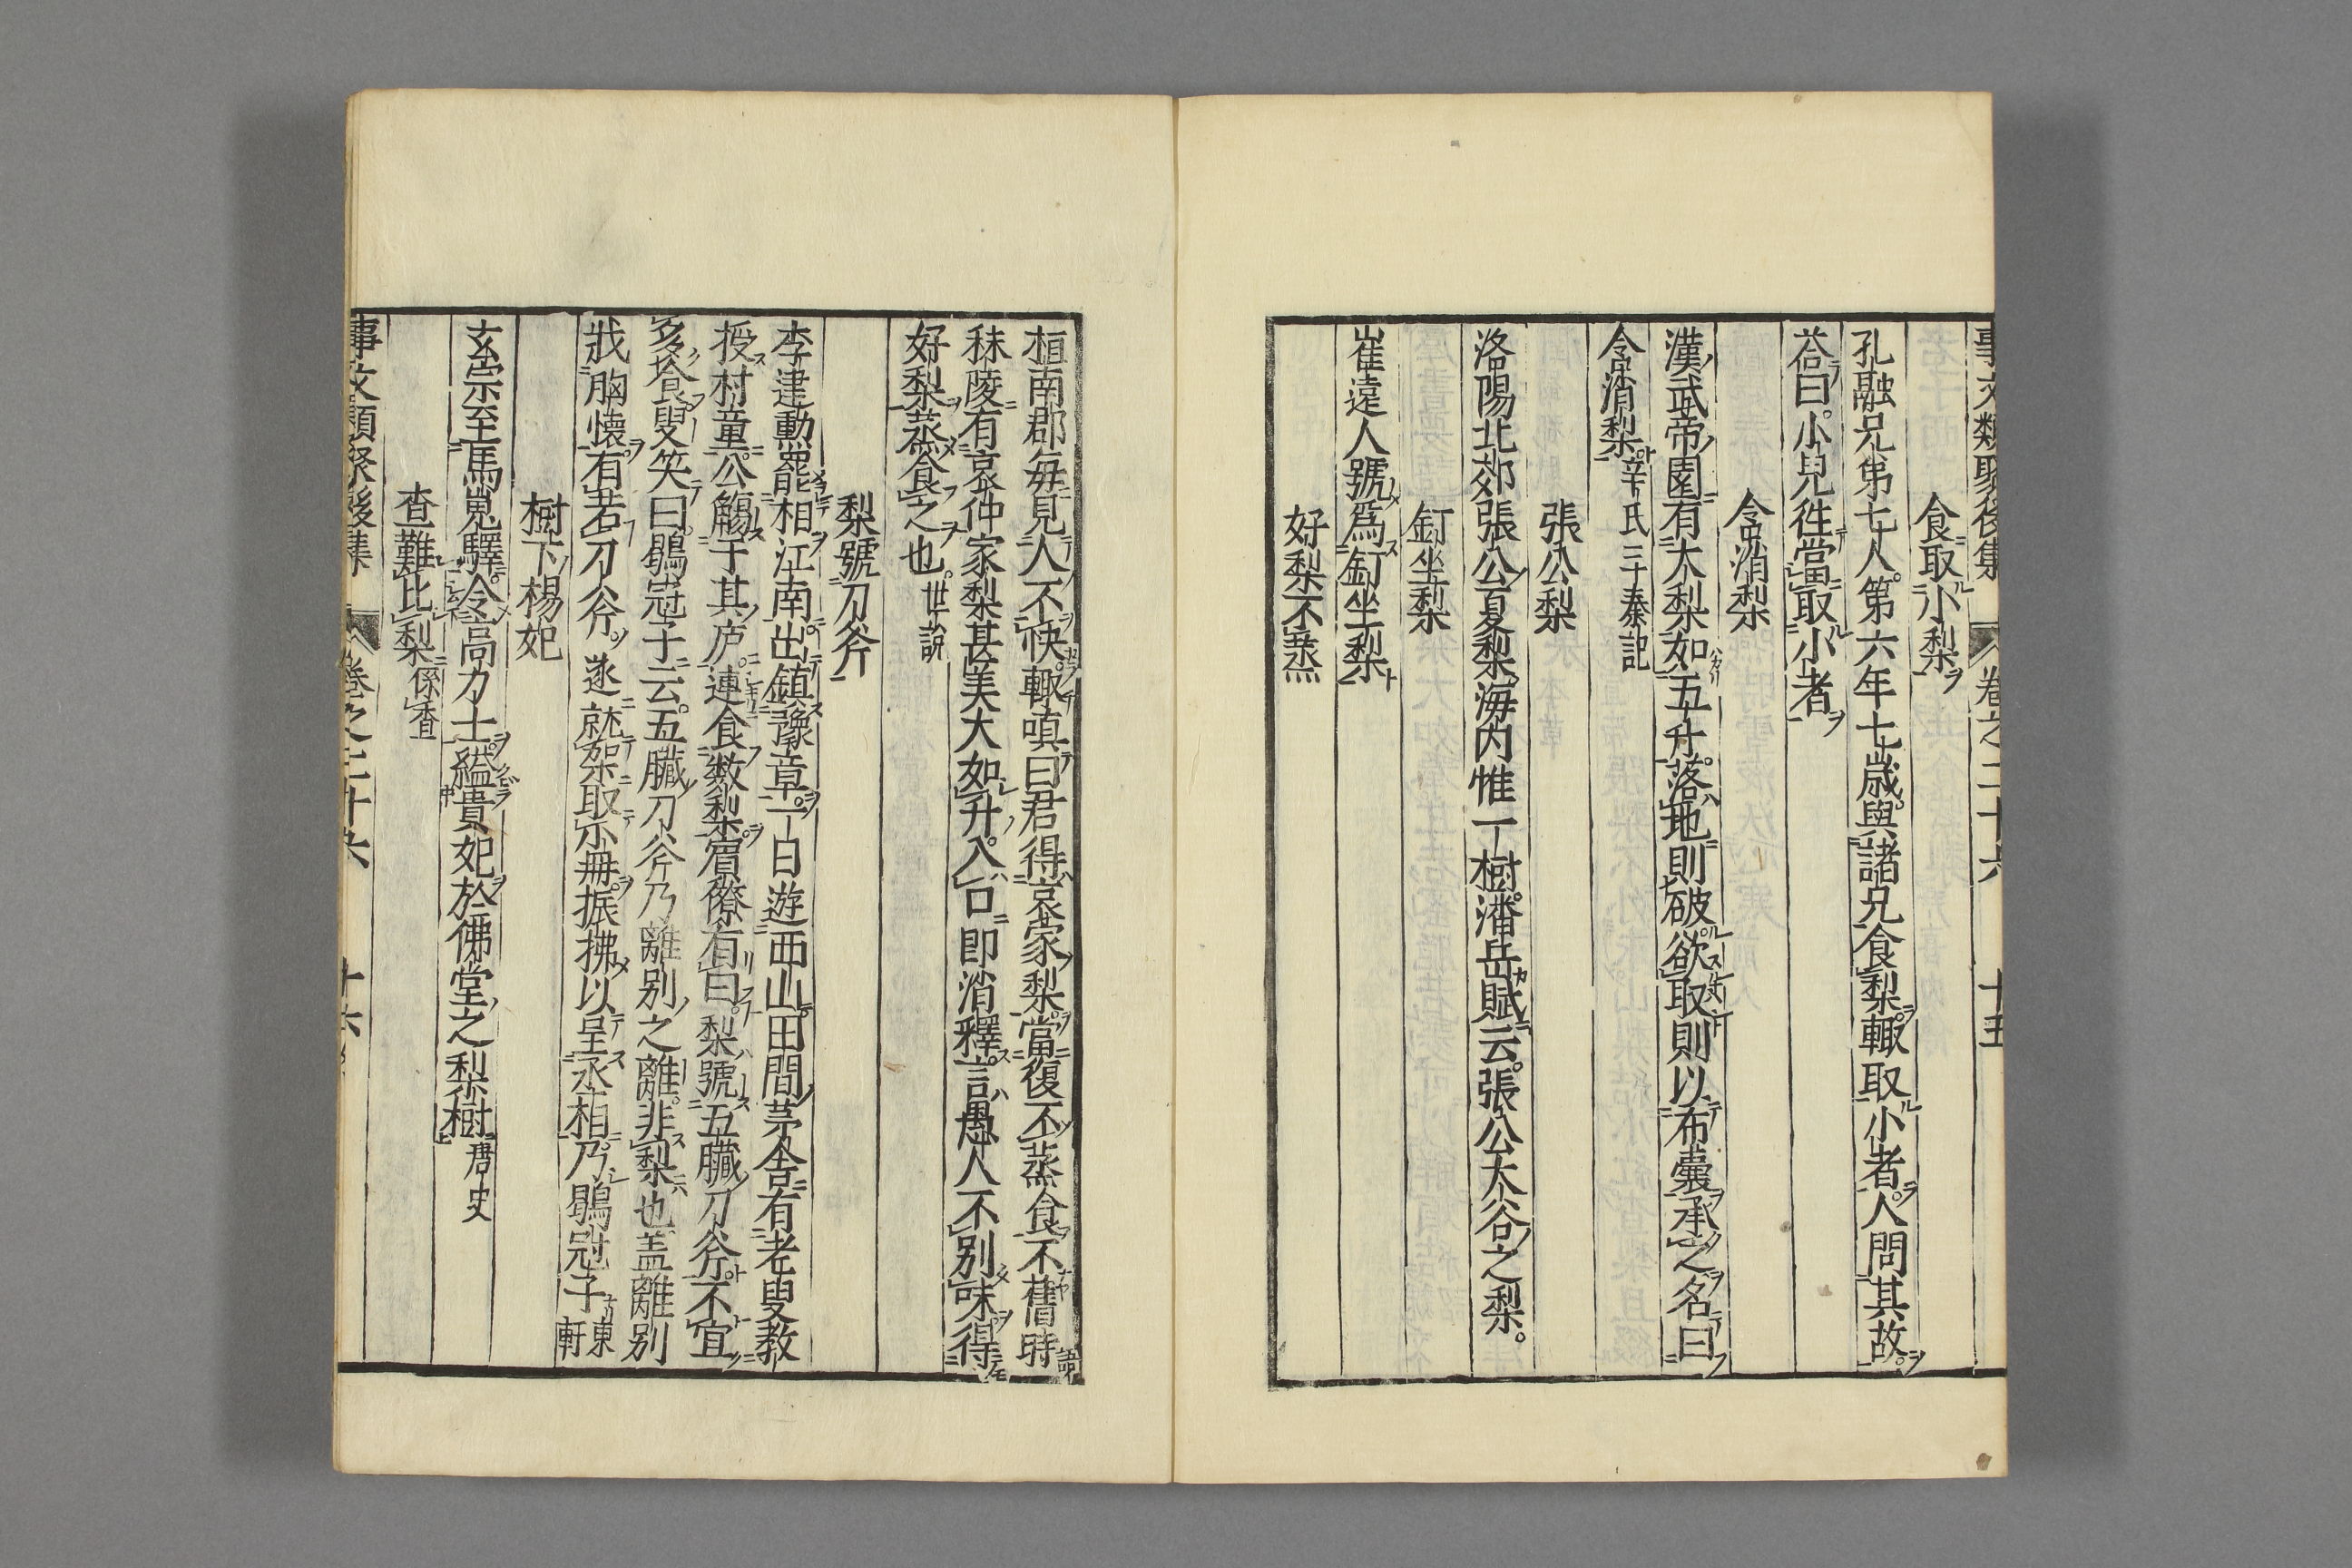 事文類聚後集 卷之二十六 十五
食取小梨
孔融兄弟七人第六年七歲與諸兄食梨輙取小者人問其故
荅曰小兒徃當取小者
含消梨
漢武帝園有大梨如五升落地則破欲取則以布囊承之名曰
含消梨辛氏三秦記
張公梨
洛陽北郊張公夏梨海内惟一樹潘岳賦云張公大谷之梨
飣坐梨
崔遠人號爲飣坐梨
好梨不蒸
桓南郡每見人不快輙嗔曰君得哀家梨當復不蒸食不舊時
秣陵有哀仲家梨甚美大如升入口即消釋言愚人不別味得
好梨蒸食之也世說
梨號刀斧
李建勳罷相江南出鎮豫章一日遊西山田間茅舍有老叟教
授村童公觴于其庐連食数梨賓僚有曰梨號五臟刀斧不宜
多飡叟笑曰鶡冠子云五臟刀斧乃離别之離非梨也盖離别
戕胸懐有若刀斧遂就架取小冊振拂以呈丞相乃鶡冠子東軒
樹下楊妃
玄宗至馬嵬驛令高力士縊貴妃於佛堂之梨樹唐史
查難比梨係查
事文類聚後集 卷之二十六 十六